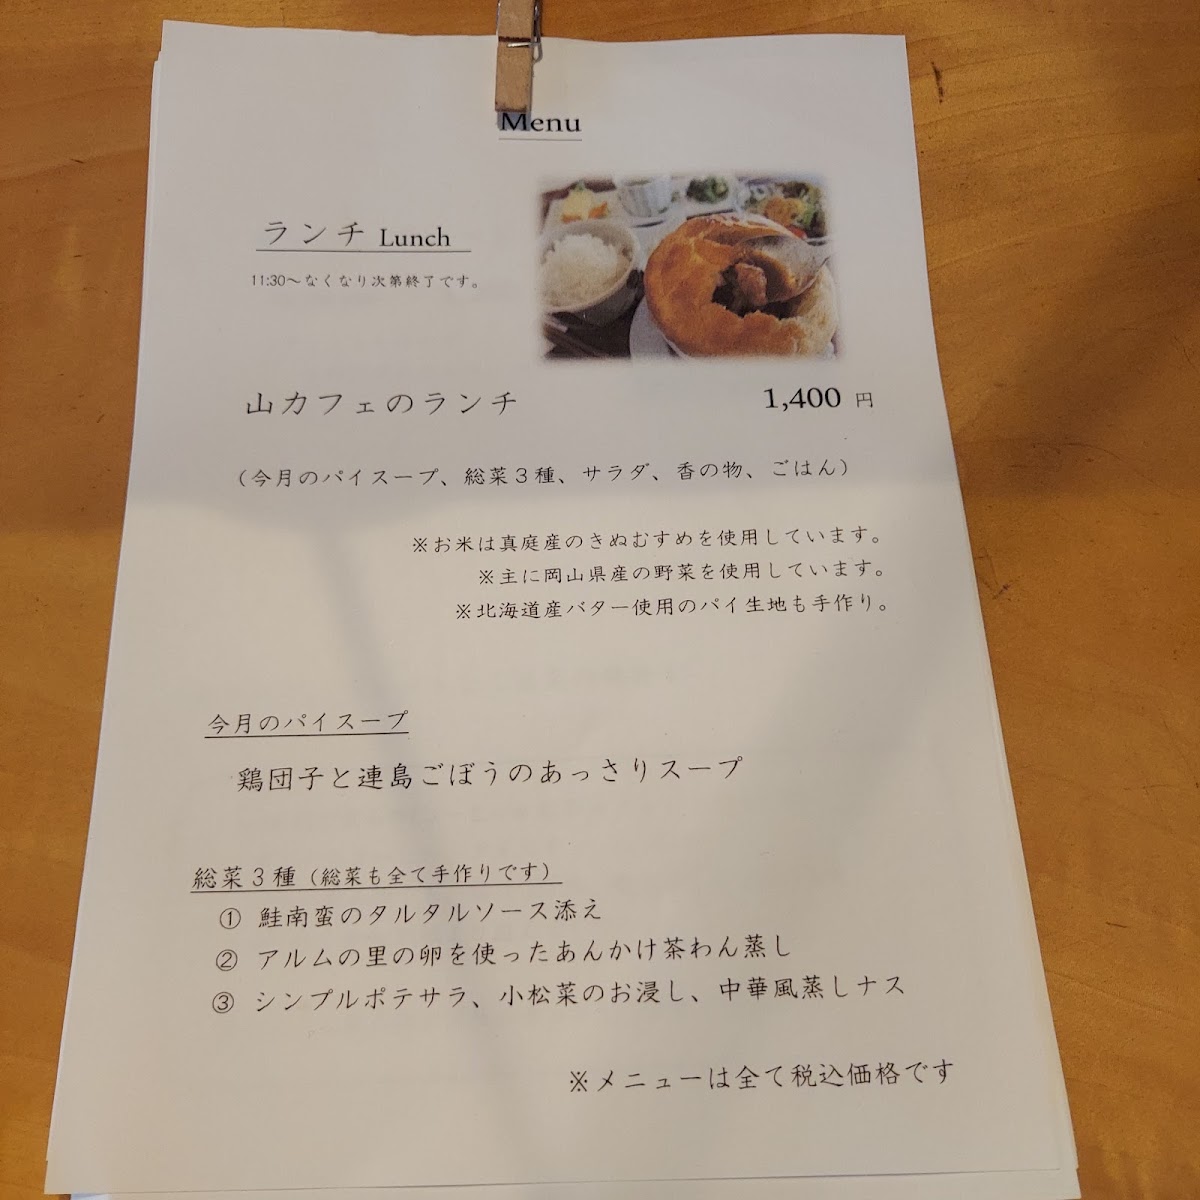 Menu
ランチ Lunch
11:30～なくなり次第終了です。
山カフェのランチ 1,400 円
（今月のパイスープ、総菜３種、サラダ、香の物、ごはん）
※お米は真庭産のきぬむすめを使用しています。
※主に岡山県産の野菜を使用しています。
※北海道産バター使用のパイ生地も手作り。
今月のパイスープ
鶏団子と連島ごぼうのあっさりスープ
総菜３種（総菜も全て手作りです）
① 鮭南蛮のタルタルソース添え
② アルムの里の卵を使ったあんかけ茶わん蒸し
③ シンプルポテサラ、小松菜のお浸し、中華風蒸しナス
※メニューは全て税込価格です